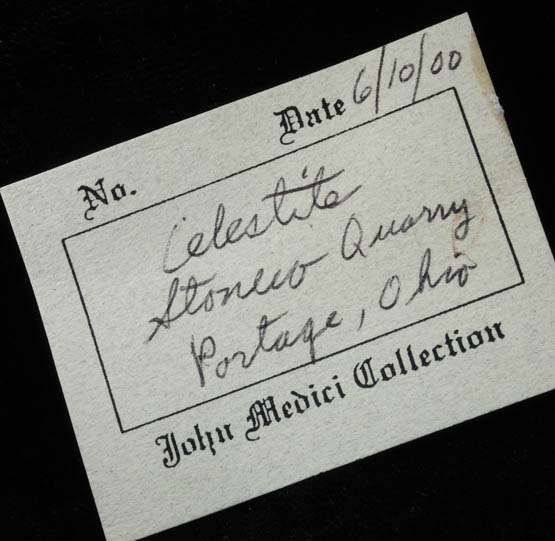 No. Date 6/10/00
Celestite
Stoneco Quarry
Portage, Ohio
John Medici Collection